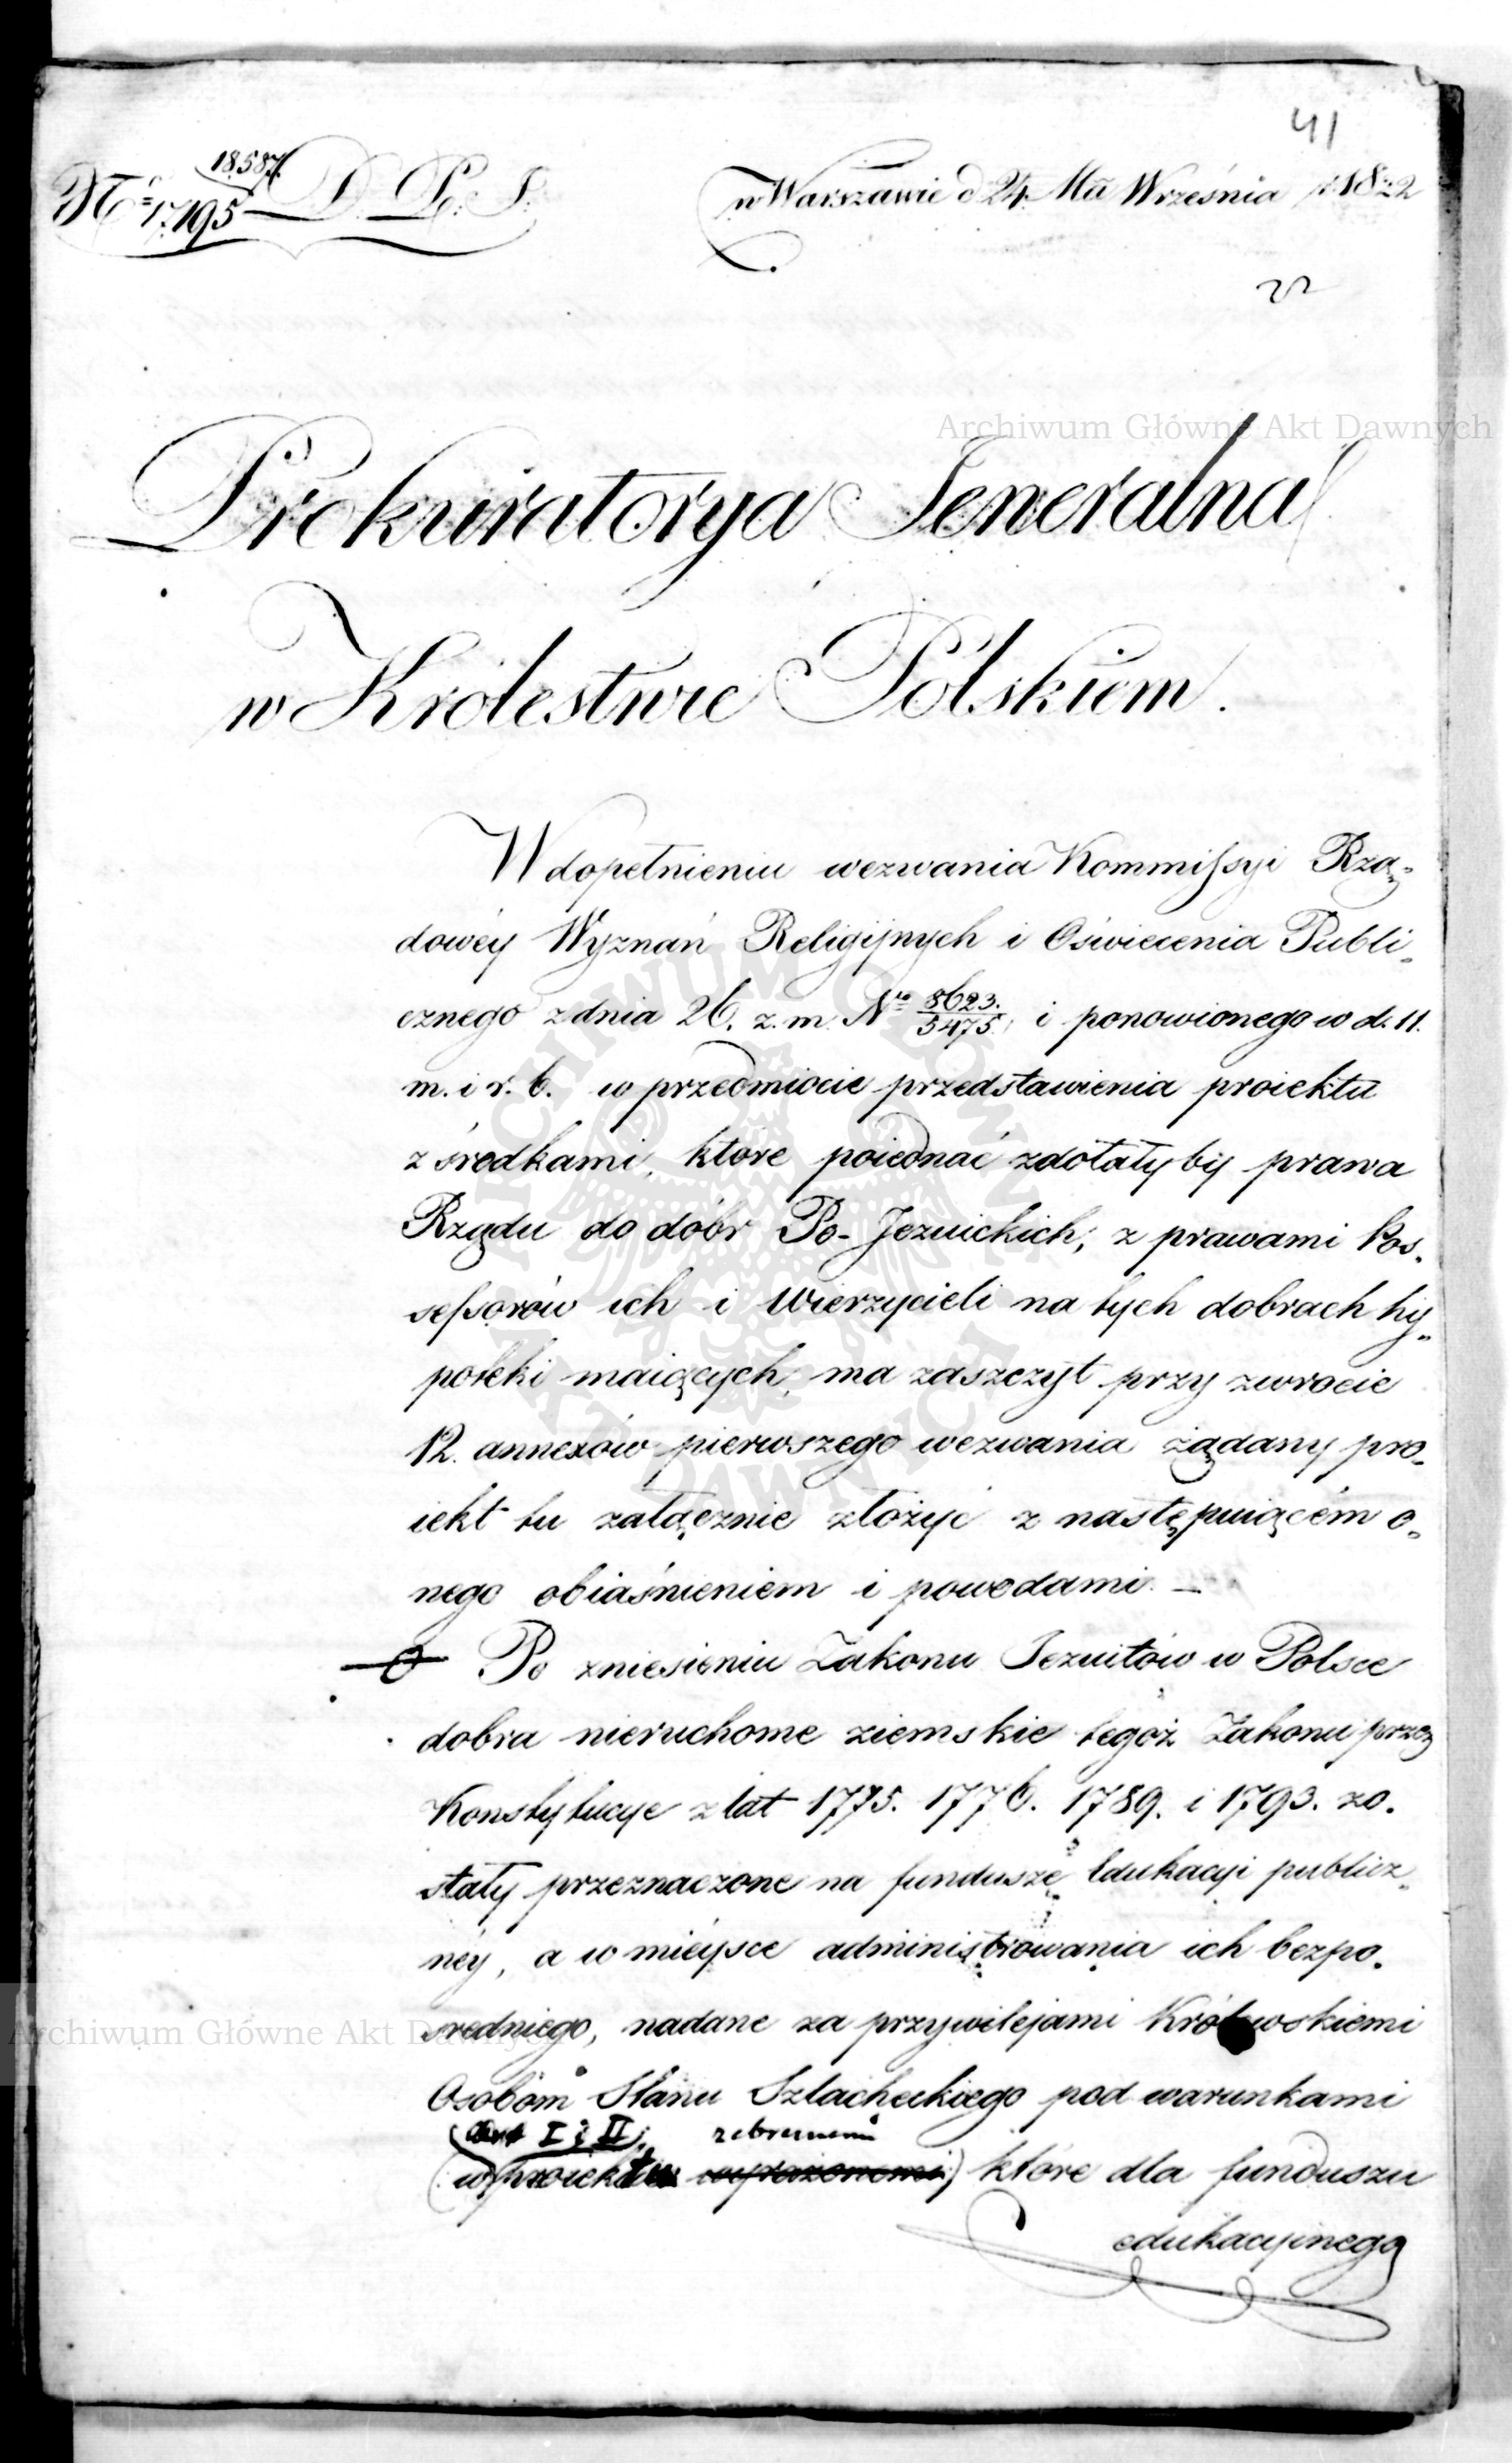 41
18587.
No 17195 D. Po. J.
w Warszawie d 24 Ma Września r. 1822
22
Archiwum Główne Akt Dawnych
Prokuratorya Jeneralna
w Królestwie Polskiem.
W dopełnieniu wezwania Kommissyi Rzą-
dowéy Wyznań Religijnych i Oświecenia Publi-
cznego z dnia 26. z. m. Nro 8623./5475. i ponowionego w d. 11.
m. i r. b. w przedmiocie przedstawienia proiektu
z środkami, które poiednać zdołałyby prawa
Rządu do dóbr Po-Jezuickich, z prawami Pos-
sessorów ich i Wierzycieli na tych dobrach hy-
poteki maiących, ma zaszczyt przy zwrocie
12. annexów pierwszego wezwania żądany pro-
iekt tu załącznie złożyć z następuiącém o-
nego obiaśnieniem i powodami. —
Po zniesieniu Zakonu Jezuitów w Polsce
dobra nieruchome ziemskie tegoż Zakonu przez
Konstytucye z lat 1775. 1776. 1789. i 1793. zo-
stały przeznaczone na fundusze Edukacyi publicz-
néy, a w mieysce administrowania ich bezpo-
średniego, nadane za przywilejami Królewskiemi
Archiwum Główne Akt Dawnych
Osobom Stanu Szlacheckiego pod warunkami
Art I i II zebranemi
(w proiektu wyrażonemi) które dla funduszu
edukacyinego
ARCHIWUM GŁÓWNE AKT DAWNYCH